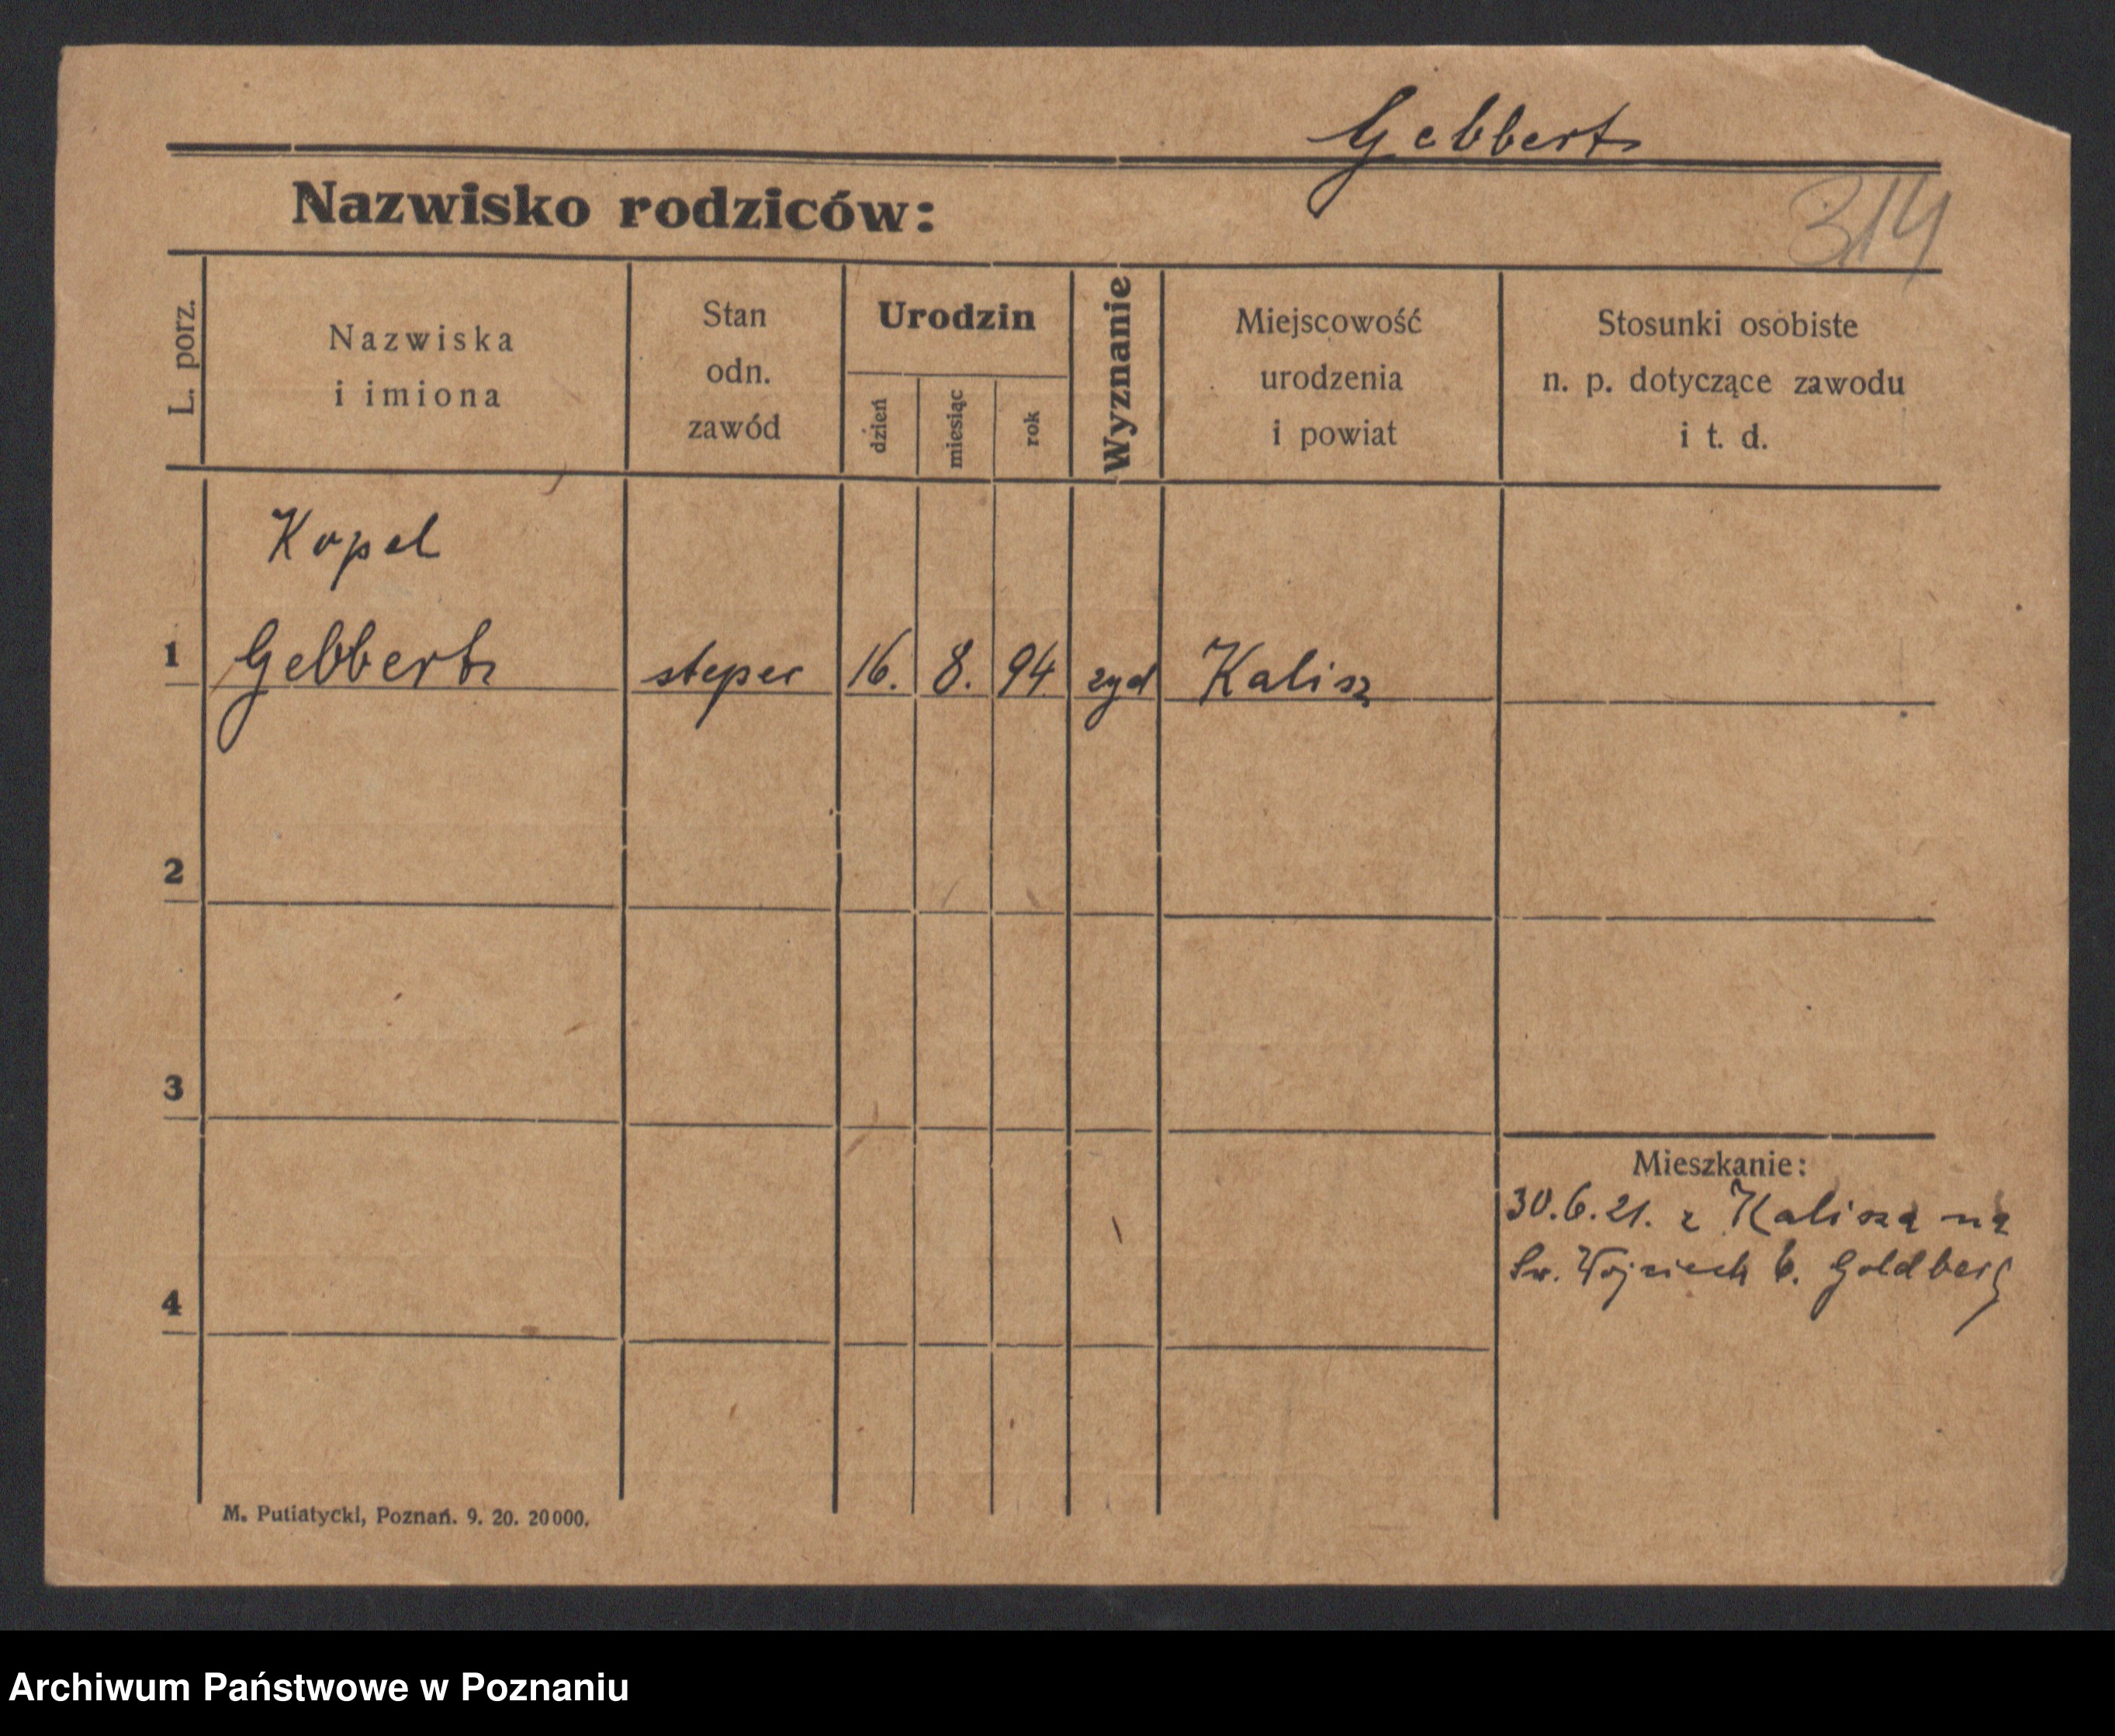 Gebbert
Nazwisko rodziców:
314
L. porz.
Nazwiska
i imiona
Stan
odn.
zawód
Urodzin
dzień
miesiąc
rok
Wyznanie
Miejscowość
urodzenia
i powiat
Stosunki osobiste
n. p. dotyczące zawodu
i t. d.
Kopel
1 Gebbert stepec 16. 8. 94 zyd Kalisz
2
3
Mieszkanie:
30.6.21. z Kalisza na
Św. Wojciech 6. Goldberg
4
M. Putiatycki, Poznań. 9. 20. 20000.
Archiwum Państwowe w Poznaniu